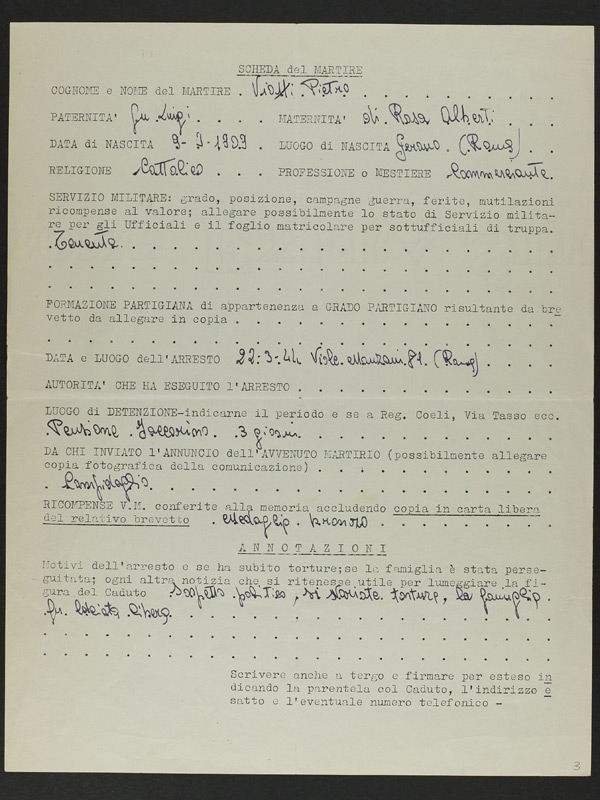 SCHEDA del MARTIRE
COGNOME e NOME del MARTIRE . Viotti . Pietro . . . . . . . .
PATERNITA' fu Luigi . . . . MATERNITA' di Rosa Alberti . . .
DATA di NASCITA 9-7-1909 . LUOGO di NASCITA Gerano . (Roma) .
RELIGIONE Cattolica . . . PROFESSIONE o MESTIERE Commerciante.
SERVIZIO MILITARE: grado, posizione, campagne guerra, ferite, mutilazioni
ricompense al valore; allegare possibilmente lo stato di Servizio milita-
re per gli Ufficiali e il foglio matricolare per sottufficiali di truppa.
. Tenente . . . . . . . . . . . . . . . . . .
FORMAZIONE PARTIGIANA di appartenenza a GRADO PARTIGIANO risultante da bre
vetto da allegare in copia . . . . . . . . . . . . . .
DATA e LUOGO dell'ARRESTO 22-3-44 Viale Manzoni 81. (Roma) . . .
AUTORITA' CHE HA ESEGUITO l'ARRESTO . . . . . . . . . . .
LUOGO di DETENZIONE-indicarne il periodo e se a Reg. Coeli, Via Tasso ecc.
Pensione Jaccarino . 3 giorni . . . . . . . . . . .
DA CHI INVIATO l'ANNUNCIO dell'AVVENUTO MARTIRIO (possibilmente allegare
copia fotografica della comunicazione) . . . . . . . . . .
RICOMPENSE V.M. conferite alla memoria accludendo copia in carta libera
del relativo brevetto . Medaglia . bronzo . . . . . . .
ANNOTAZIONI
Motivi dell'arresto e se ha subito torture;se la famiglia è stata perse-
guitata; ogni altra notizia che si ritenesse utile per lumeggiare la fi-
gura del Caduto sospetto politico, si torture, la famiglia .
fu lasciata libera . . . . . . . . . . . . . . .
Scrivere anche a tergo e firmare per esteso in
dicando la parentela col Caduto, l'indirizzo e
satto e l'eventuale numero telefonico -
3